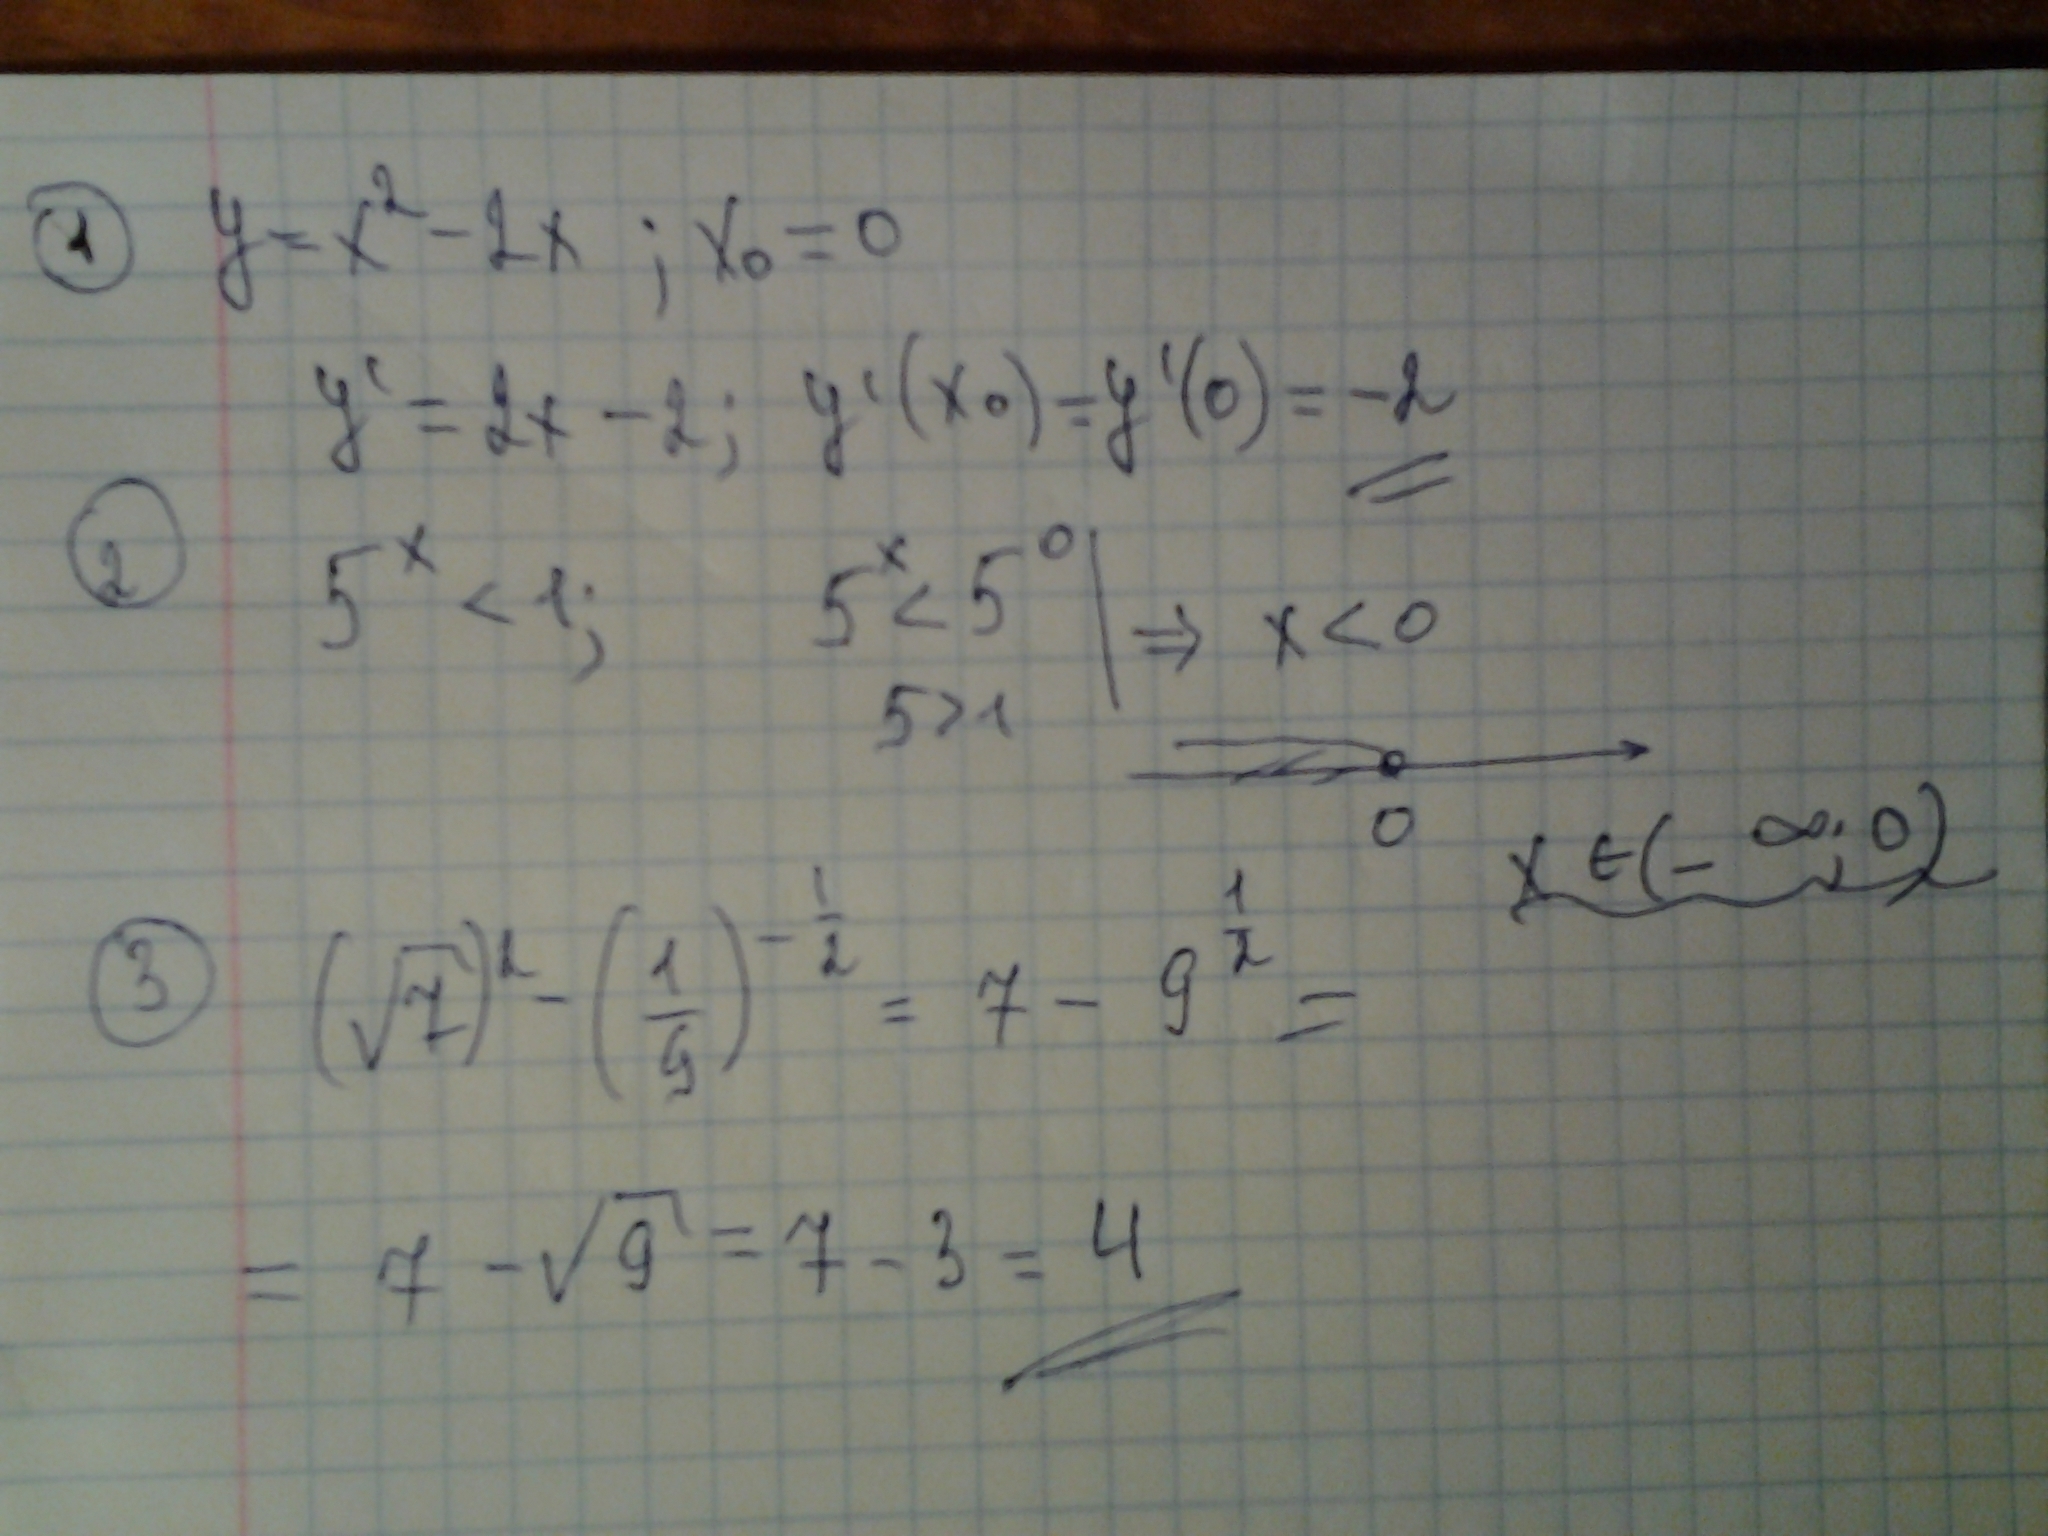 ① y = x² - 2x ; x₀ = 0
y' = 2x - 2; y'(x₀) = y'(0) = -2
② 5ˣ < 1; 5ˣ < 5⁰ | ⇒ x < 0
5 > 1
0
x ∈ (-∞; 0)
③ (√7)² - (1/9)^(-1/2) = 7 - 9^(1/2) =
= 7 - √9 = 7 - 3 = 4